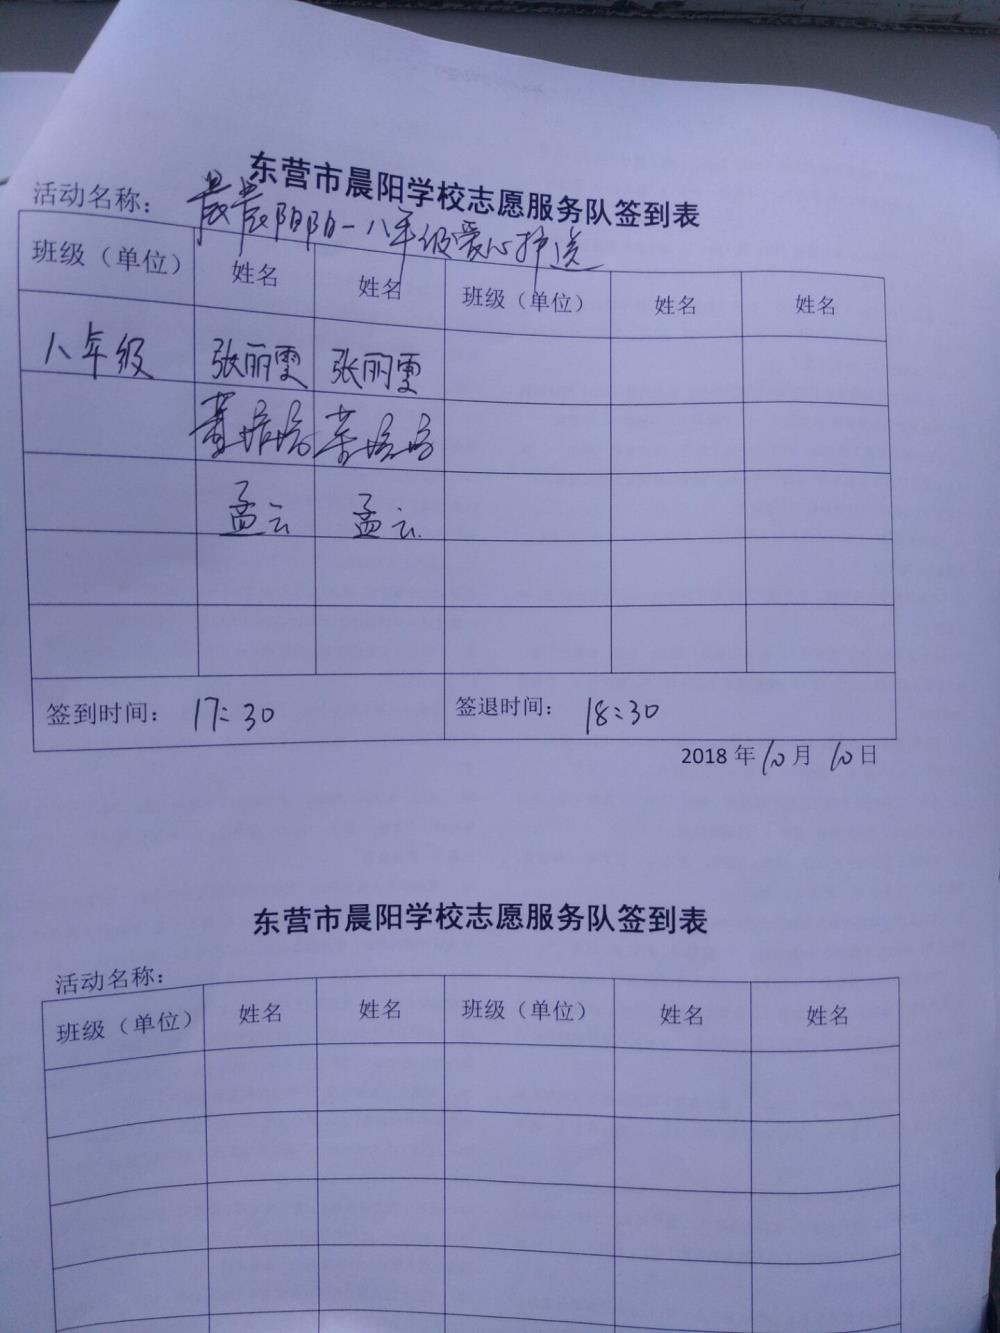 东营市晨阳学校志愿服务队签到表
活动名称： 晨晨阳阳-八年级爱心护送
班级（单位） 姓名 姓名 班级（单位） 姓名 姓名
八年级 张丽雯 张丽雯
孟云 孟云
签到时间： 17:30 签退时间： 18:30
2018年10月10日
东营市晨阳学校志愿服务队签到表
活动名称：
班级（单位） 姓名 姓名 班级（单位） 姓名 姓名